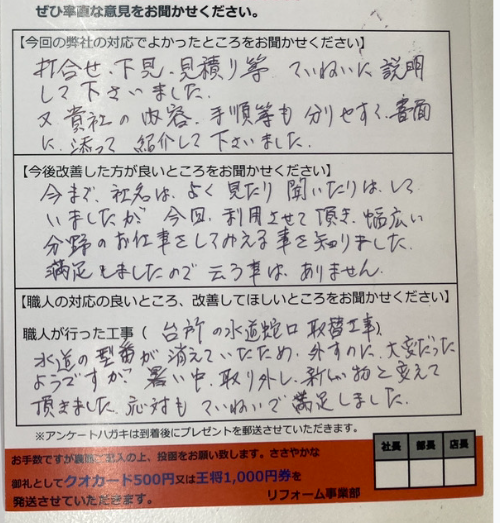 ぜひ率直な意見をお聞かせください。
【今回の弊社の対応でよかったところをお聞かせください】
打合せ、下見、見積り等 ていねいに説明
して下さいました。
又、貴社の内容、手順等も分りやすく、書面
に添って紹介して下さいました。
【今後改善した方が良いところをお聞かせください】
今まで、社名は、よく見たり聞いたりは、して
いましたが 今回、利用させて頂き、幅広い
分野のお仕事をしてみえる事を知りました。
満足しましたので 云う事は、ありません。
【職人の対応の良いところ、改善してほしいところをお聞かせください】
職人が行った工事（ 台所の水道蛇口 取替工事）
水道の型番が消えていたため、外すのに、大変だった
ようですが、暑い中、取り外し、新しい物と変えて
頂きました。応対もていねいで満足しました。
※アンケートハガキは到着後にプレゼントを郵送させていただきます。
社長 部長 店長
お手数ですが裏面ご記入の上、投函をお願い致します。ささやかな
御礼としてクオカード500円又は王将1,000円券を
発送させていただきます。 リフォーム事業部